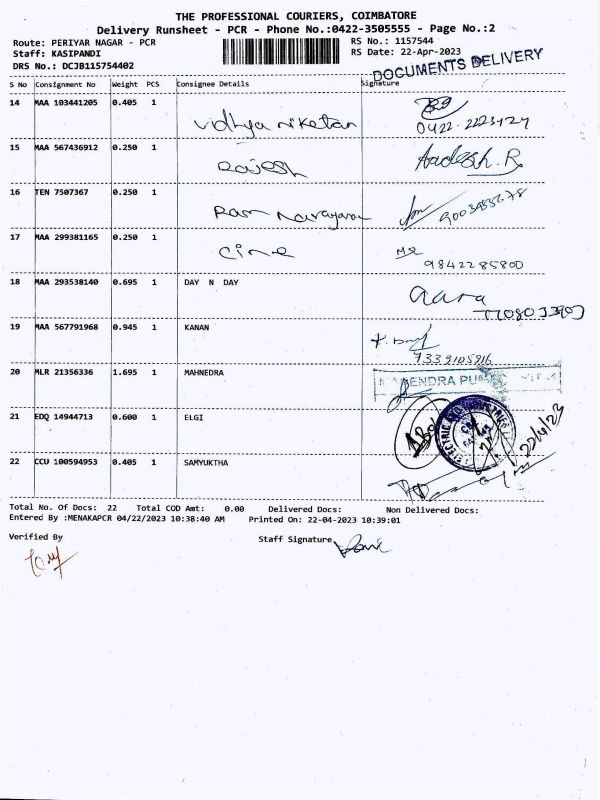 THE PROFESSIONAL COURIERS, COIMBATORE
Delivery Runsheet - PCR - Phone No.:0422-3505555 - Page No.:2
Route: PERIYAR NAGAR - PCR
RS No.: 1157544
Staff: KASIPANDI
RS Date: 22-Apr-2023
DRS No.: DCJB115754402
DOCUMENTS DELIVERY
S No Consignment No Weight PCS Consignee Details Signature
14 MAA 103441205 0.405 1 Vidhya Niketan
15 MAA 567436912 0.250 1 Rajesh Aadesh.R
16 TEN 7507367 0.250 1 Ram Narayanan
17 MAA 299381165 0.250 1 Cine
9842285800
18 MAA 293538140 0.695 1 DAY N DAY
19 MAA 567791968 0.945 1 KANAN
7339105916
20 MLR 21356336 1.695 1 MAHNEDRA
21 EDQ 14944713 0.600 1 ELGI 22/4/23
22 CCU 100594953 0.405 1 SAMYUKTHA
Total No. Of Docs: 22 Total COD Amt: 0.00 Delivered Docs: Non Delivered Docs:
Entered By :MENAKAPCR 04/22/2023 10:38:40 AM Printed On: 22-04-2023 10:39:01
Verified By
Staff Signature